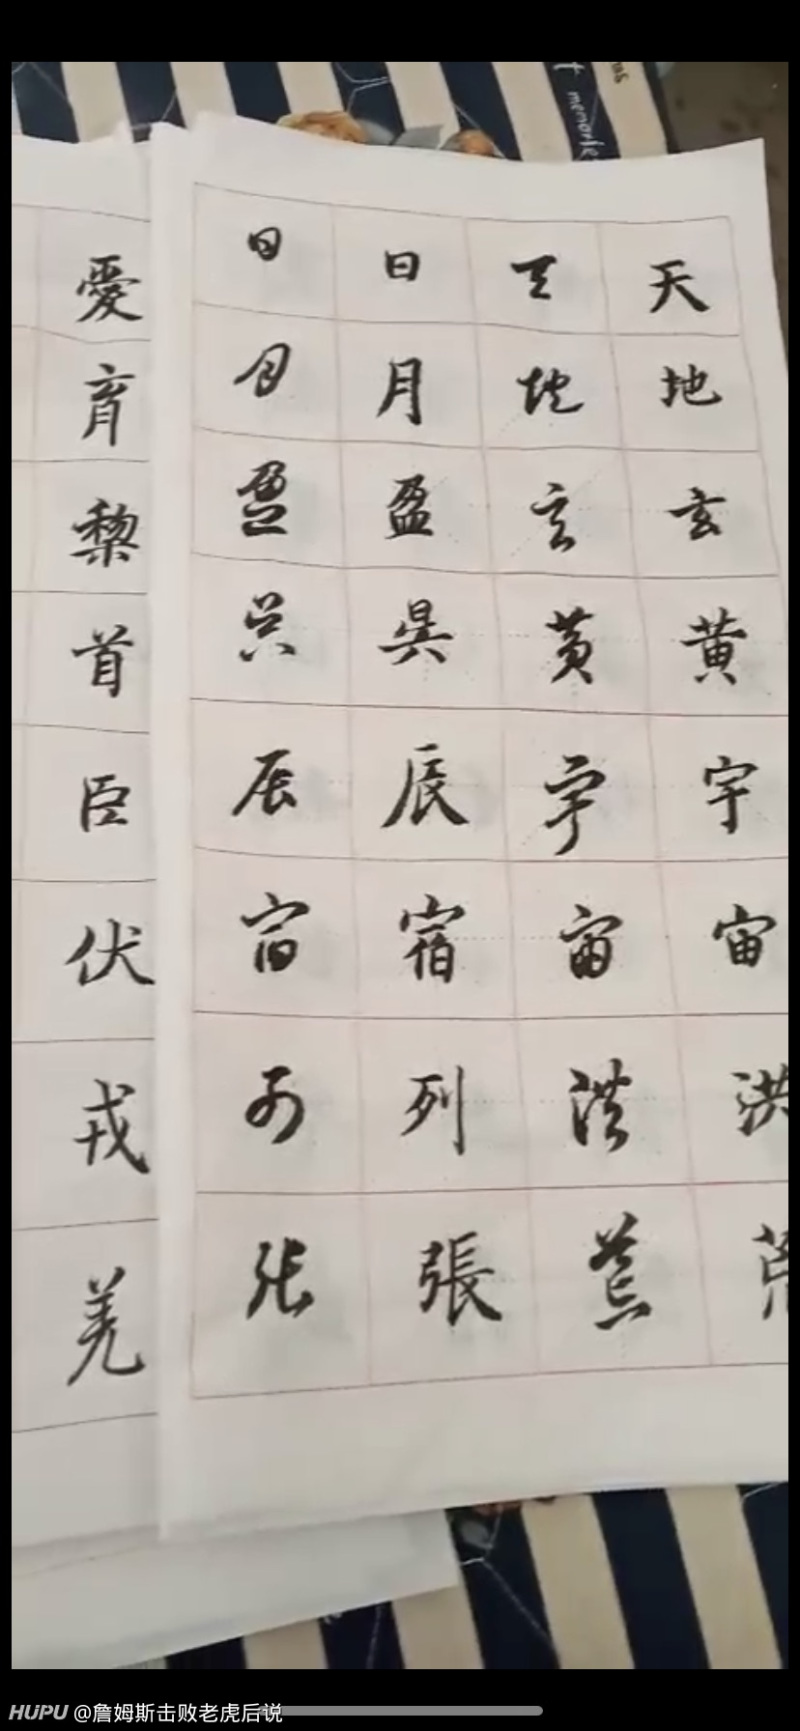 天地玄黄宇宙洪荒
天地玄黄宇宙洪荒
日月盈昃辰宿列張
日月盈昃辰宿列張
愛育黎首臣伏戎羌
memorie
HUPU @詹姆斯击败老虎后说